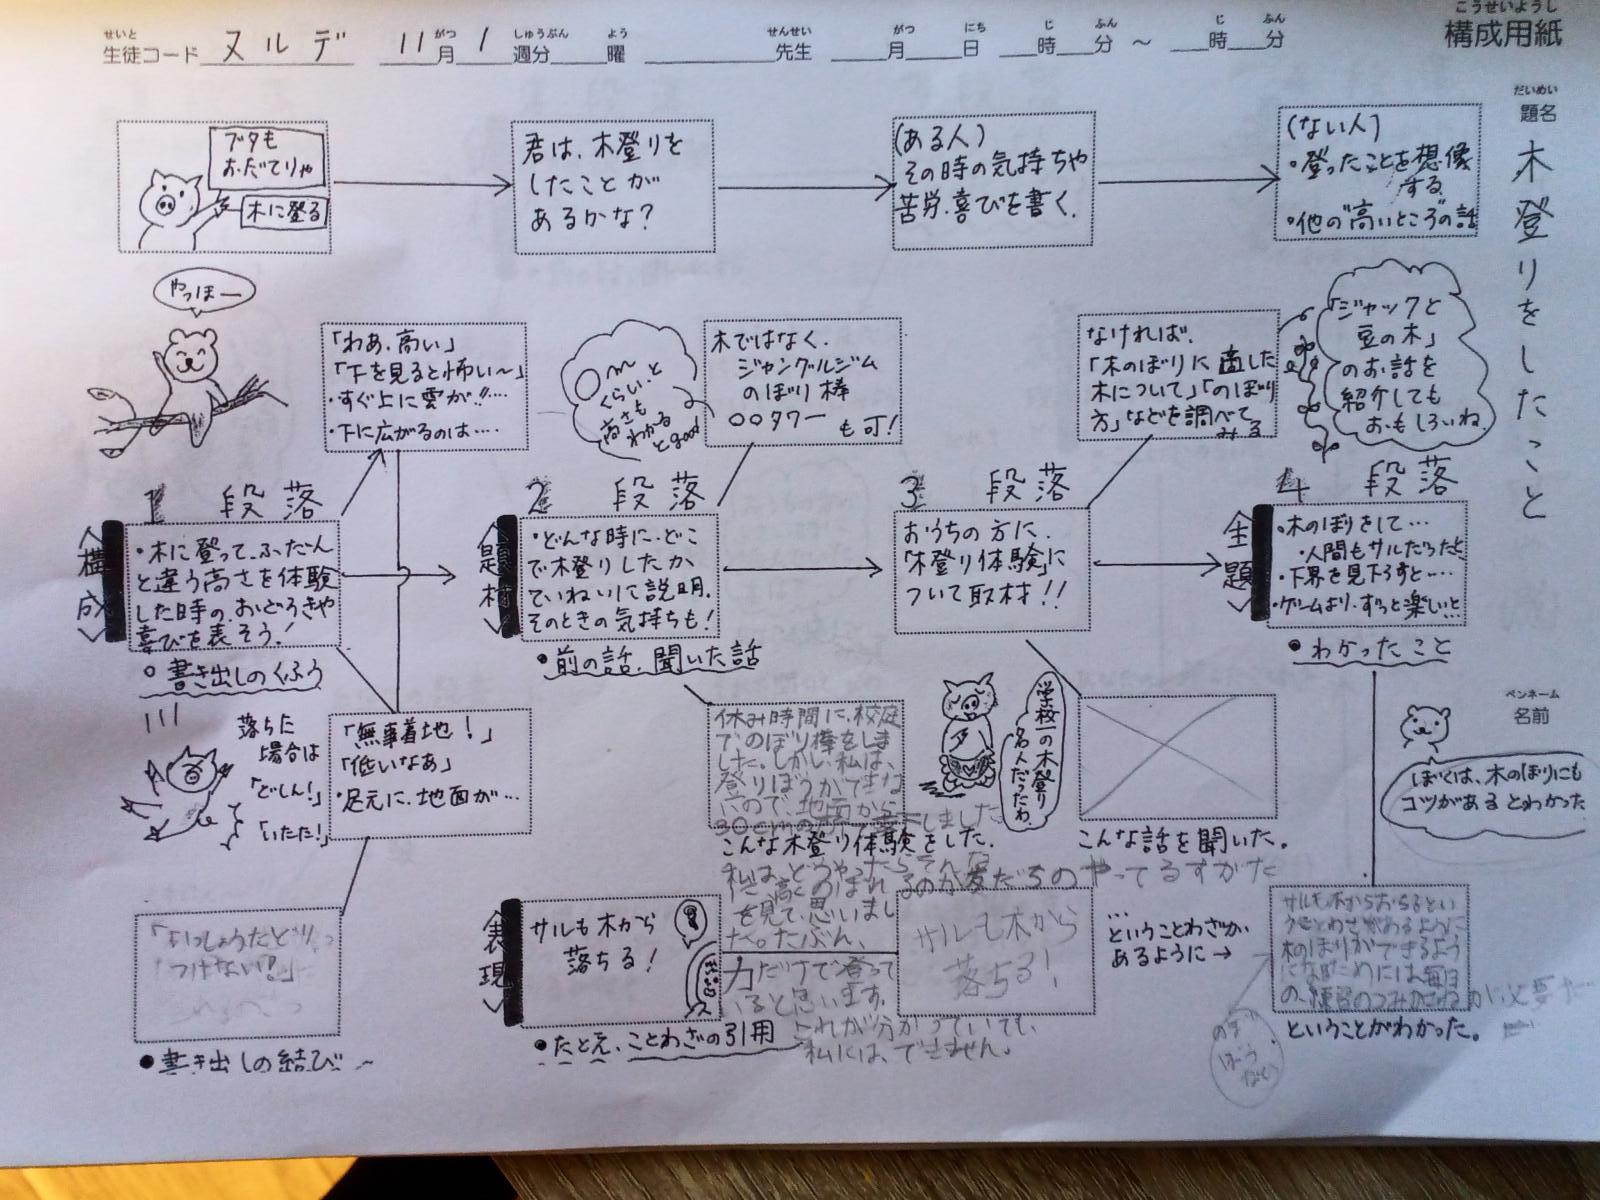 こうせいようし
構成用紙
せいと がつ しゅうぶん よう せんせい がつ にち じ ふん じ ふん
生徒コード ヌルデ 11月1週分 曜 先生 月 日 時 分 ~ 時 分
だいめい
題名
木登りをしたこと
ペンネーム
名前
ブタも
おだてりゃ
木に登る
君は、木登りを
したことが
あるかな?
(ある人)
その時の気持ちや
苦労、喜びを書く。
(ない人)
・登ったことを想像
する
・他の"高いところ"の話
やっほー
「わあ、高い」
「下を見ると怖い〜」
・すぐ上に雲が!!‥‥
・下に広がるのは‥‥
〇m
くらい、と
高さも
わかる
とgood
木ではなく、
ジャングルジム
のぼり棒
〇〇タワー
も可!
なければ、
「木のぼりに適した
木について」「のぼり
方」などを調べて
みる
「ジャックと
豆の木」
のお話を
紹介しても
おもしろいね
1 段落
<構成>
・木に登って、ふだん
と違う高さを体験
した時の、おどろきや
喜びを表そう!
○書き出しのくふう
2 段落
<題材>
・どんな時に、どこ
で木登りしたか、
ていねいに説明。
そのときの気持ちも!
●前の話、聞いた話
3 段落
おうちの方に、
「木登り体験」に
ついて取材!!
4 段落
<主題>
・木のぼりをして…
・人間もサルだったと
・下界を見下ろすと‥‥
・ゲームより、ずっと楽しいと
●わかったこと
落ちた
場合は
「どしん!」
「いたた!」
「無事着地!」
「低いなあ」
・足元に、地面が…
休み時間に、校庭
でのぼり棒をしま
した。しかし、私は、
登りぼうができな
いので、地面から
30cmの
しました
こんな木登り体験をした。
学校一の木登り
名人だったわ。
こんな話を聞いた。
ぼくは、木のぼりにも
コツがあるとわかった
私は、どうやったらそんな
に高くのぼれるのか友だちのやってるすがた
を見て、思いまし
た。たぶん、
力だけで登って
いると思います。
それが分かっていても、
私には、できません。
●書き出しの結び
<表現>
サルも木から
落ちる!
●たとえ、ことわざの引用
サルも木から
落ちる!
…ということわざが、
あるように→
サルも木からおちるとい
うことわざがあるように
木のぼりができるよう
になるためには、毎日
の、練習のつみかさねが必要だ
ということがわかった。